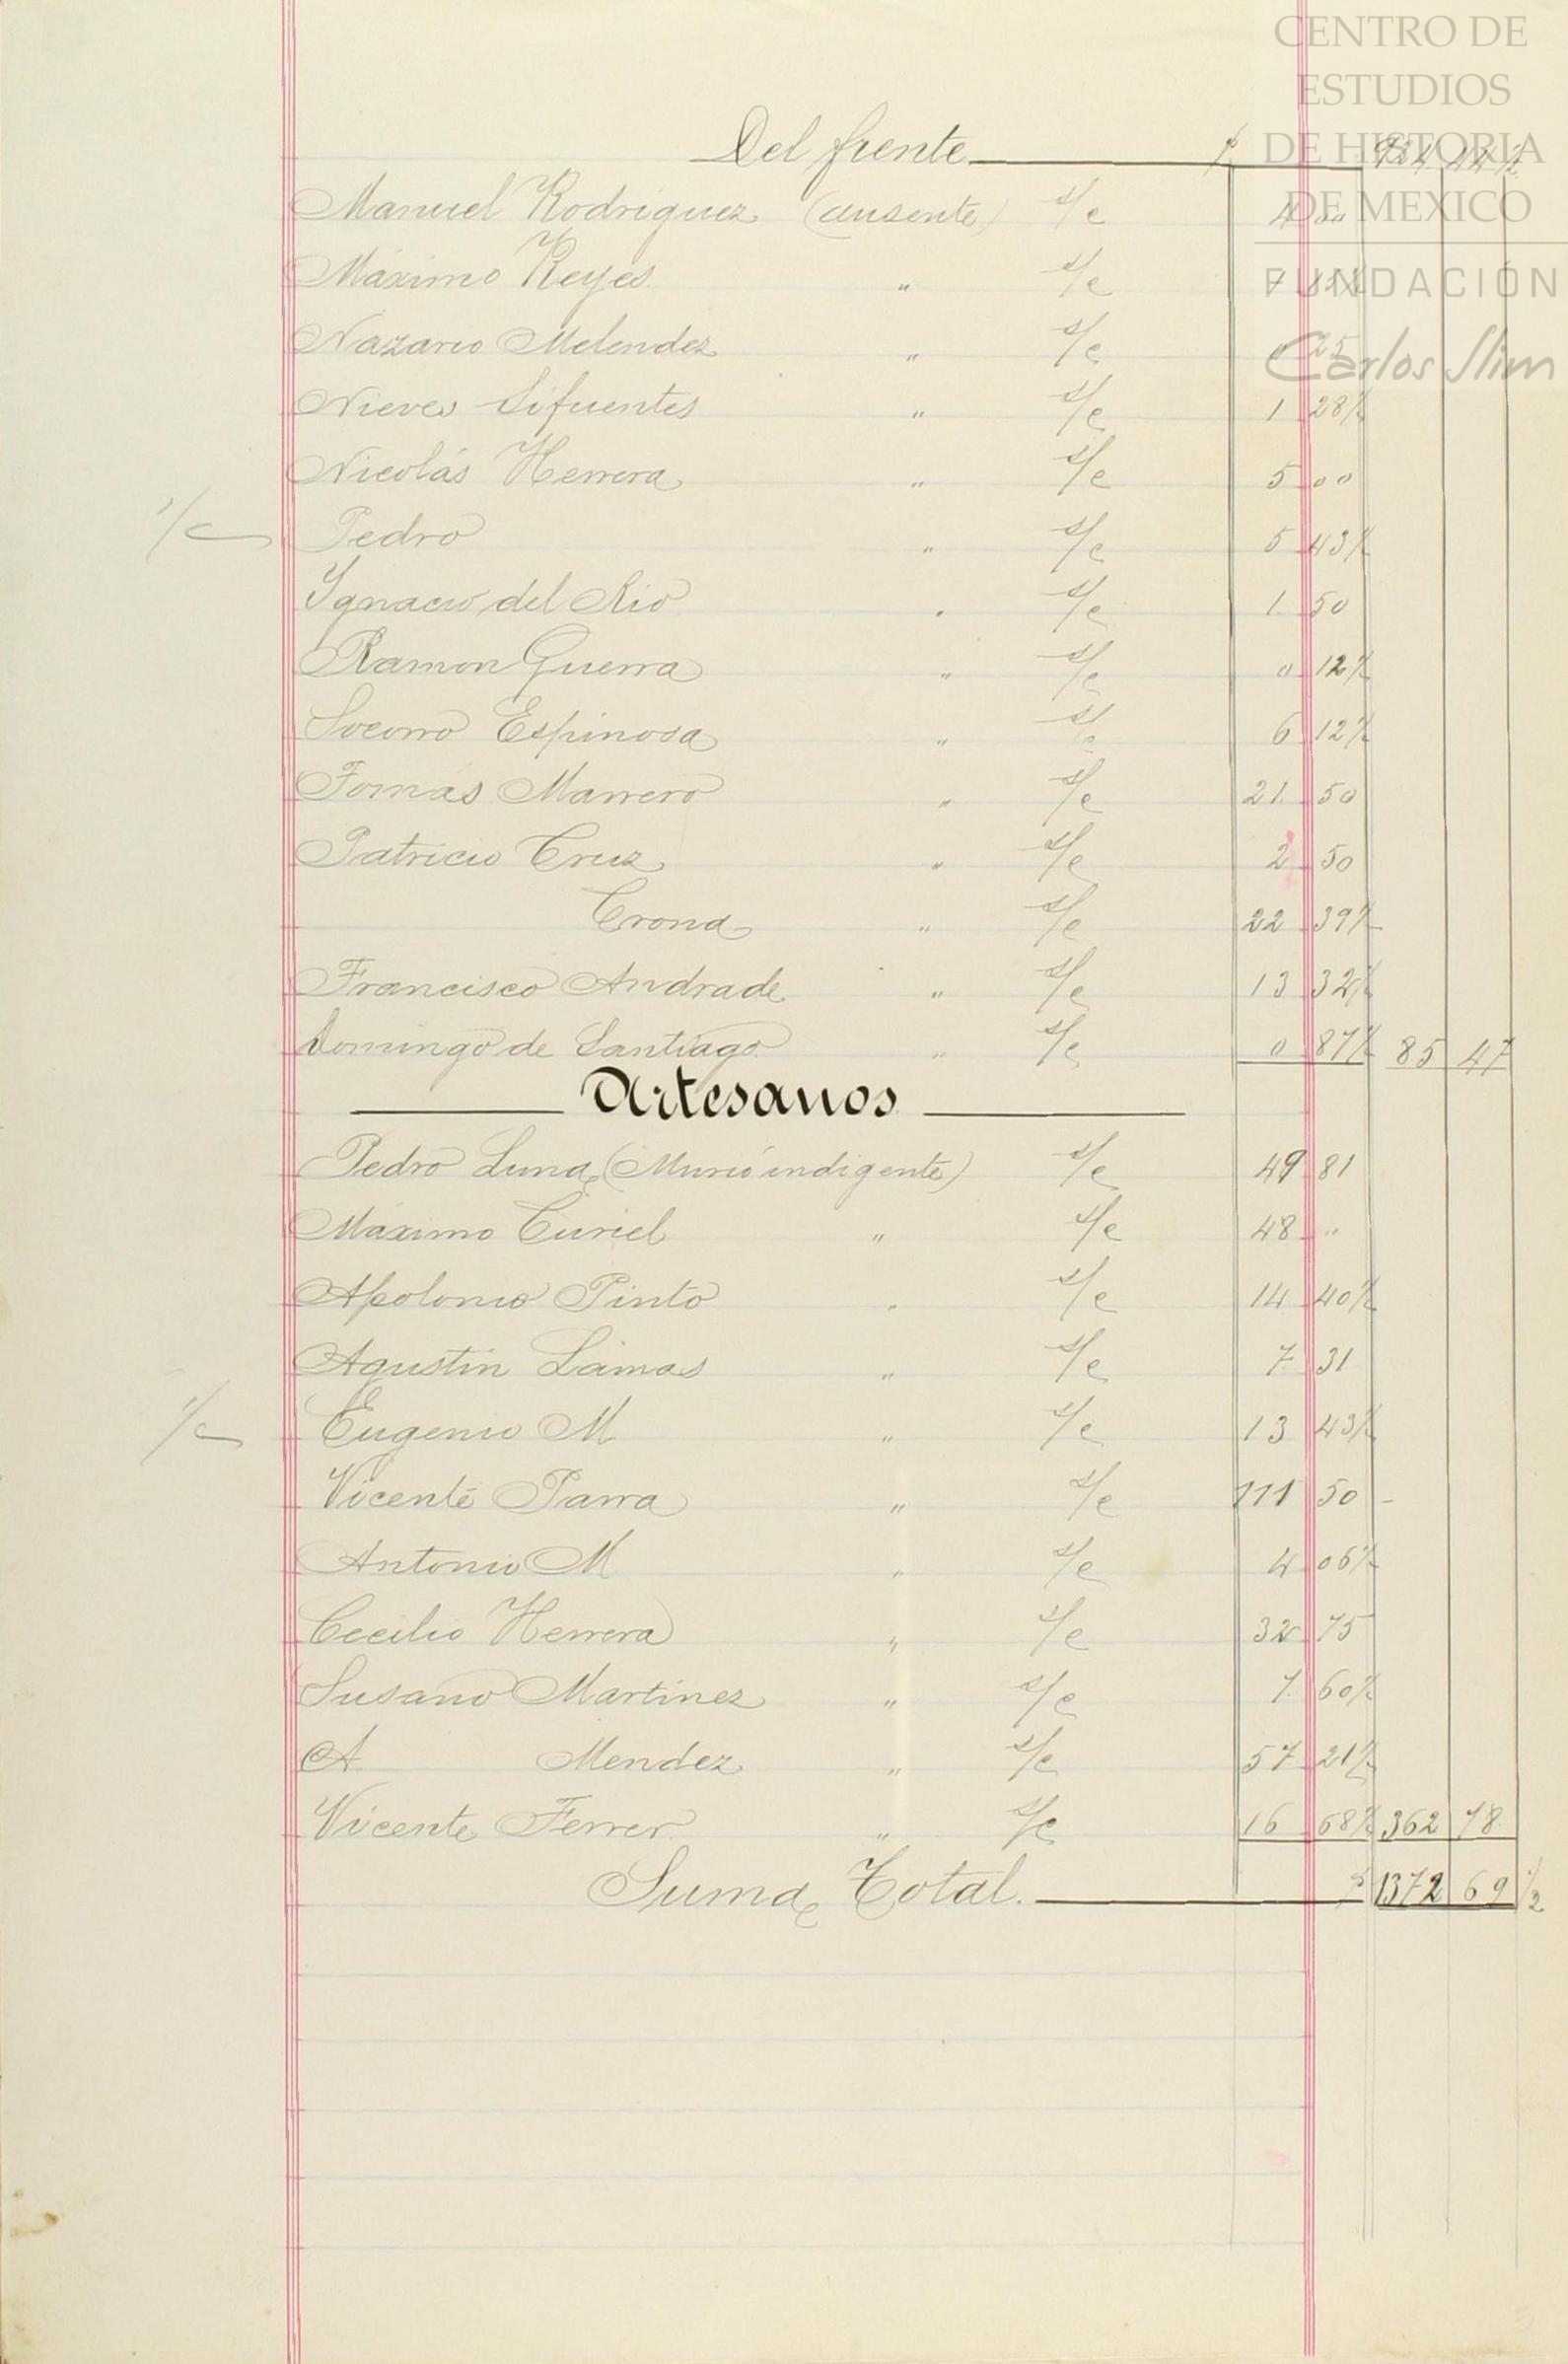 CENTRO DE
ESTUDIOS
DE HISTORIA
DE MEXICO
FUNDACIÓN
Carlos Slim
Del frente $
Manuel Rodriguez (ausente) s/c 4
Máximo Reyes " s/c
Nazario Melendez " s/c 0 25
Nieves Sifuentes " s/c 1 28½
Nicolás Herrera " s/c 5 00
1/c Pedro " s/c 5 43½
Ygnacio del Rio " s/c 1 50
Ramon Guerra " s/c 0 12½
Socorro Espinosa " s/c 6 12½
Tomás Marrero " s/c 21 50
Patricio Cruz " s/c 2 50
Crona " s/c 22 39½
Francisco Andrade " s/c 13 32½
Domingo de Santiago " s/c 0 87½ 85 47
Artesanos
Pedro Luna (Murió indigente) s/c 49 81
Máximo Curiel " s/c 48 "
Apolonio Pinto " s/c 14 40½
Agustin Lamas " s/c 7 31
1/c Eugenio M " s/c 13 43½
Vicente Parra " s/c 111 50
Antonio M " s/c 4 06½
Cecilio Herrera " s/c 32 75
Susano Martinez " s/c 7 60½
A Mendez " s/c 57 21½
Vicente Ferrer " s/c 16 68½ 362 78
Suma Total. $ 1372 69 ½